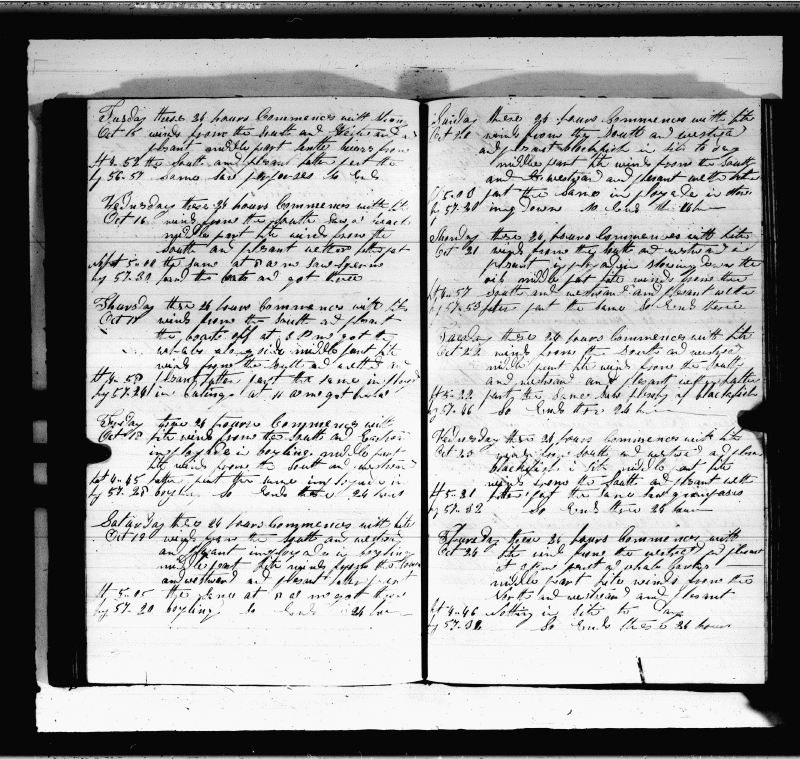 Tuesday these 24 hours Commences with
Oct 15 winds from the South and
plesant middle part winds from
lt 4-52 the South and plesant latter part the
lg 56-57 same saw porposes So Ends
Wednesday these 24 hours Commences with lt
Oct 16 winds from the South
middle part lite winds from the
South and plesant wether latter pt
lt 5-00 the same at 8 a m Saw Sperm
lg 57-30 the boats and got three
Thursday these 24 hours Commences with lite
Oct 17 winds from the South and
the boats off at P m got the
along side middle part lite
winds from the South and
lt 4-58 plesant latter part the same
lg 57-24 in cutting at 11 a m got
Friday these 24 hours Commences with
Oct 18 lite winds from the South and Eastern
imployde in boyling middle part
lite winds from the South and westward
lat 4-45 latter part the same imployde in
lg 57-28 boyling So Ends these 24 hours
Saturday these 24 hours Commences with lite
Oct 19 winds from the South and westward
and plesant imployde in boyling
middle part lite winds from the
and westward and plesant latter part
lt 5-05 the same at 8 a m got
lg 57-20 boyling So Ends 24 hours
Sunday these 24 hours Commences with lite
Oct 20 winds from the South and westward
and plesant blackfish in site to day
middle part lite winds from the South
and westward and plesant wether latter
lt 5-08 part the same imployde in stow
lg 57-30 ing down So Ends the 24 h
Monday these 24 hours Commences with lite
Oct 21 winds from the South and westward and
plesant imployde in stowing down the
oil middle part lite winds from the
lt 4-57 South and westward and plesant wether
lg 57-53 latter part the same So Ends these
Tuesday these 24 hours Commences with lite
Oct 22 winds from the South and westward
middle part lite winds from the South
and westward and plesant wether latter
lt 5-22 part the same saw plenty of blackfish
lg 57-46 So Ends these 24 h
Wednesday these 24 hours Commences with lite
Oct 23 winds from South and westward and plesant
blackfish in site middle part lite
winds from the South and plesant wether
lt 5-21 latter part the same saw grampuses
lg 57-12 So Ends these 24 hours
Thursday these 24 hours Commences with
Oct 24 lite winds from the and plesant
at
middle part lite winds from the
North and westward and plesant
lt 4-46 Nothing in Site to day
lg 57-32 So Ends these 24 hours